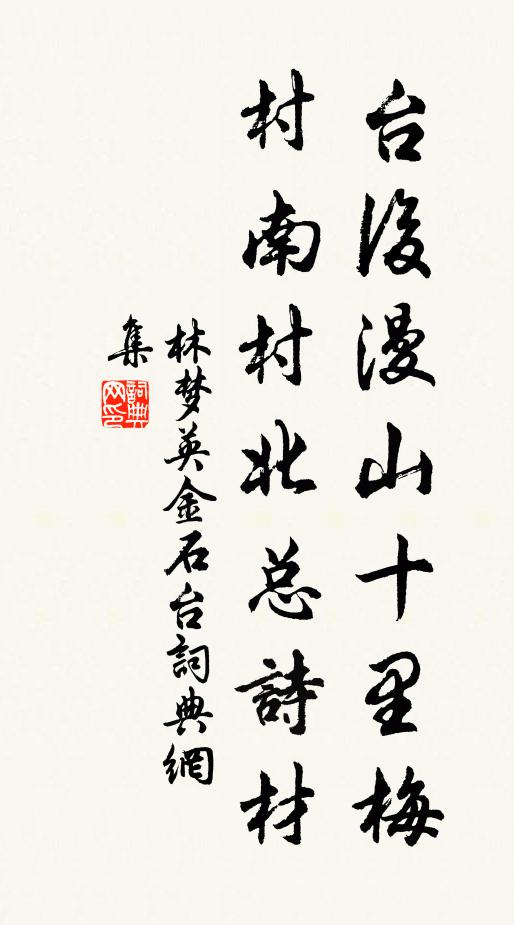 台後漫山十里梅
村南村北总詩材
林梦英金石台詞典網
集
詞典网印